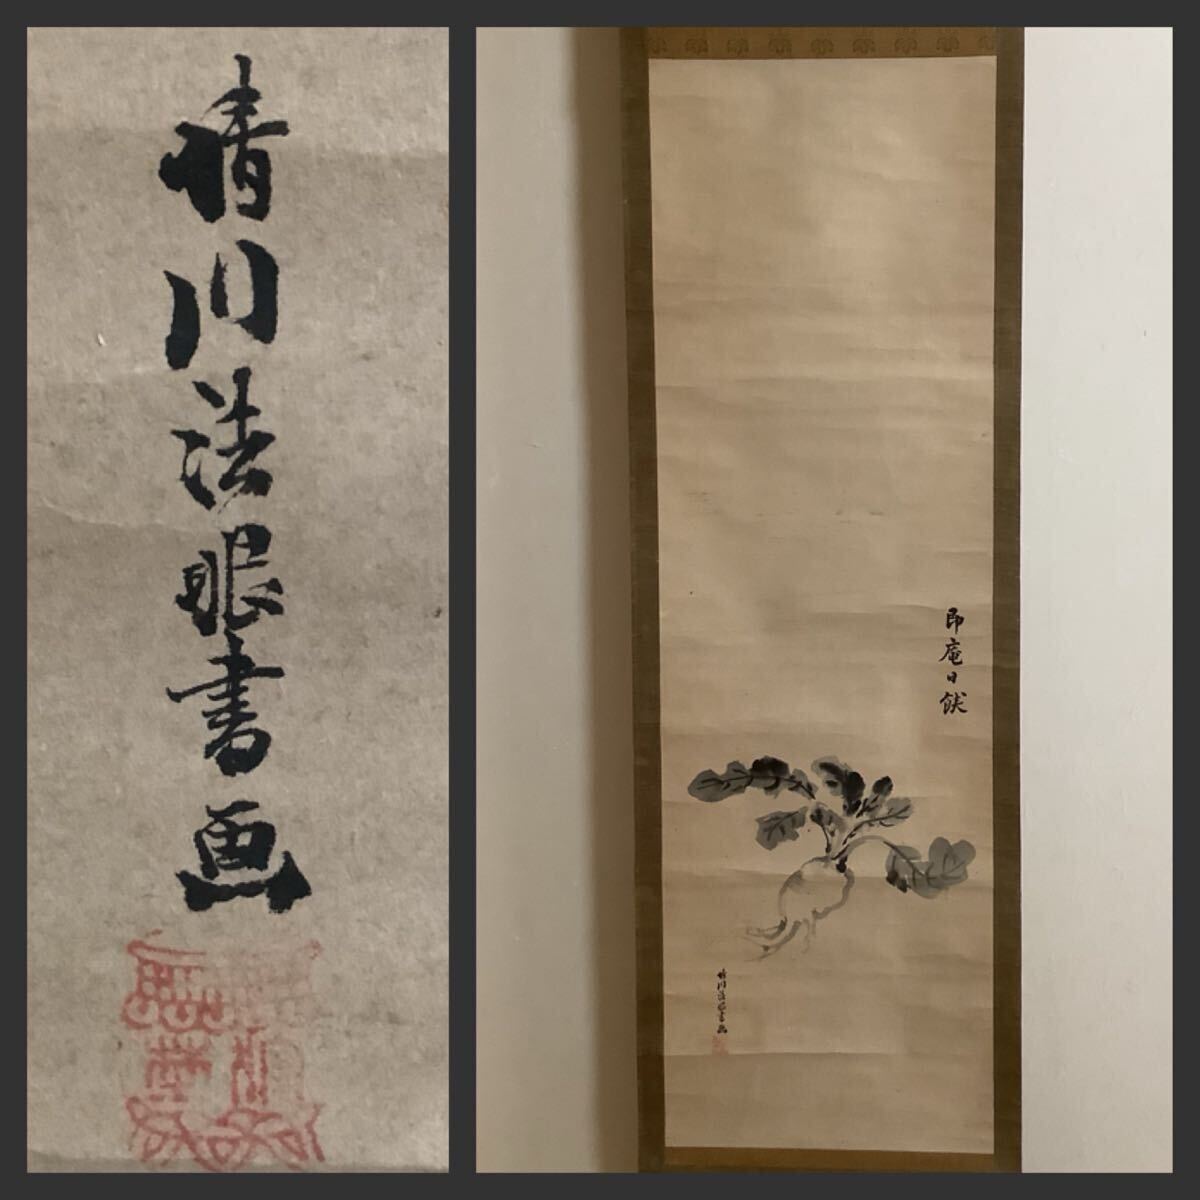 晴川法眼書画
即庵日餘
晴川法眼書画